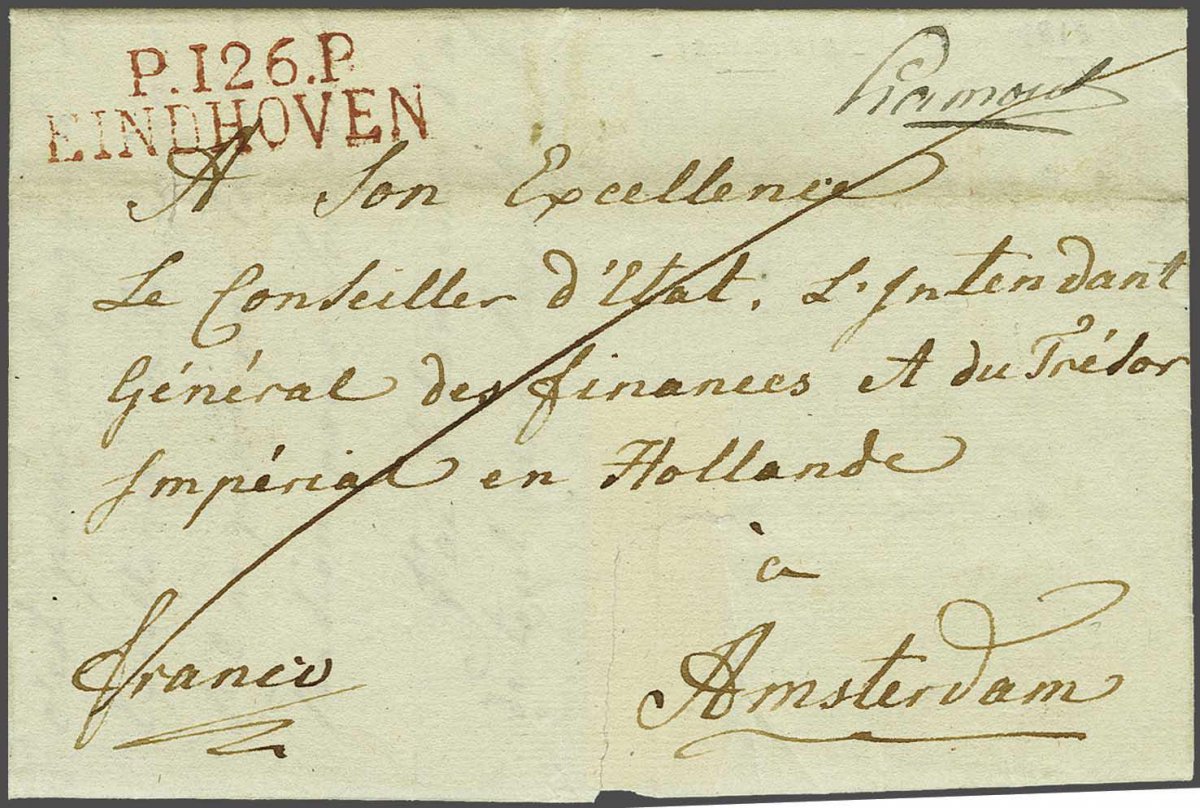 P.126.P
EINDHOVEN
A Son Excellence
Le Conseiller d'Etat, L'Intendant
Général des finances et du Trésor
Impérial en Hollande
à
Amsterdam
franco